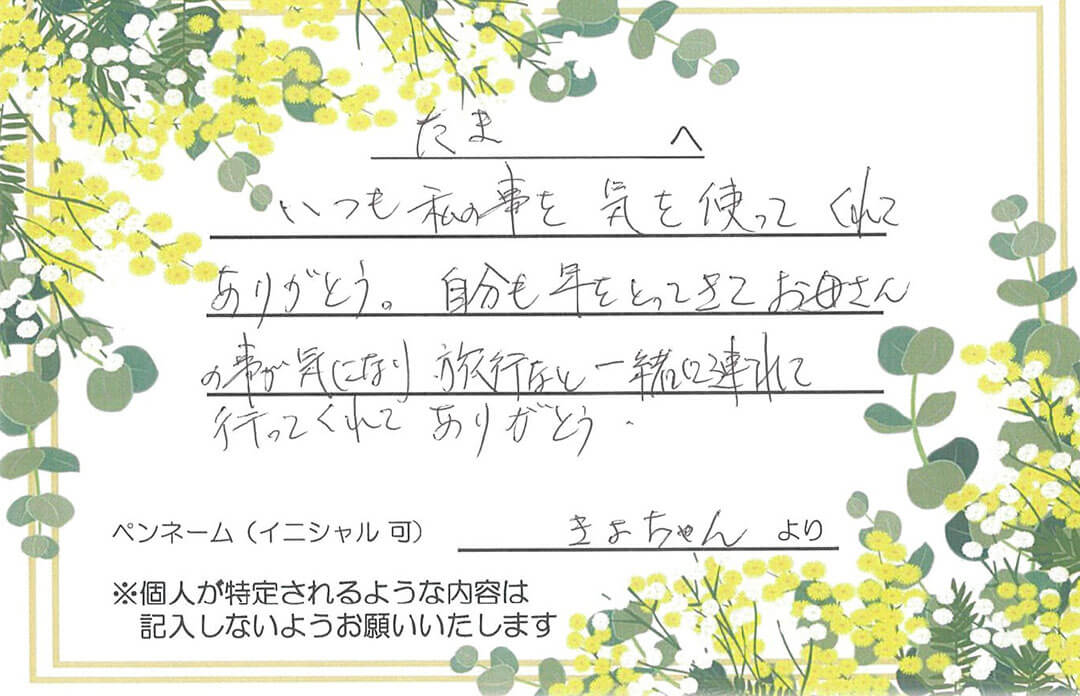 たま へ
いつも私の事を 気を使って くれて
ありがとう。 自分も年をとってきて お母さん
の事が気になり 旅行など一緒に連れて
行ってくれて ありがとう.
ペンネーム（イニシャル 可） きよちゃん より
※個人が特定されるような内容は
記入しないようお願いいたします